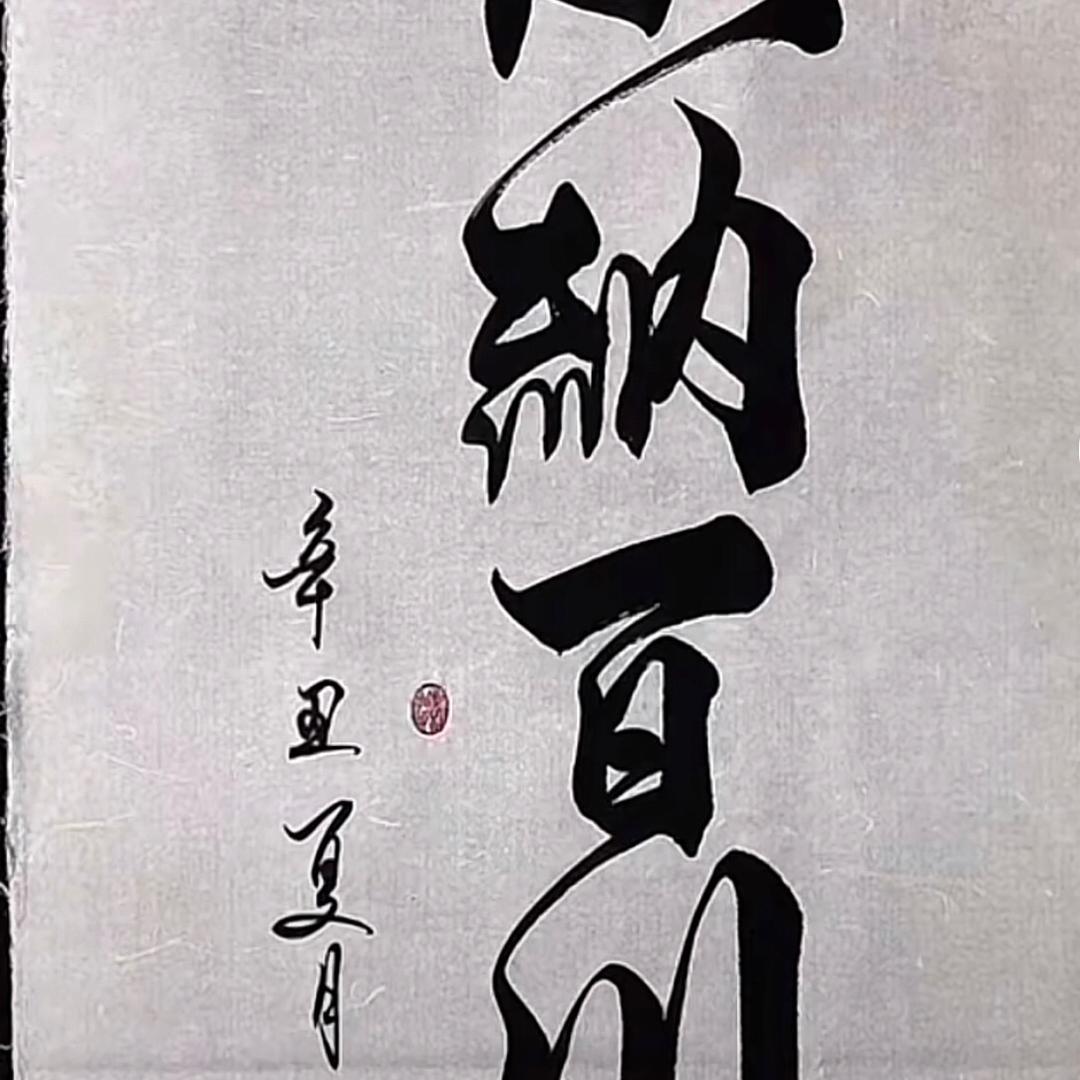 納百川
辛丑夏月